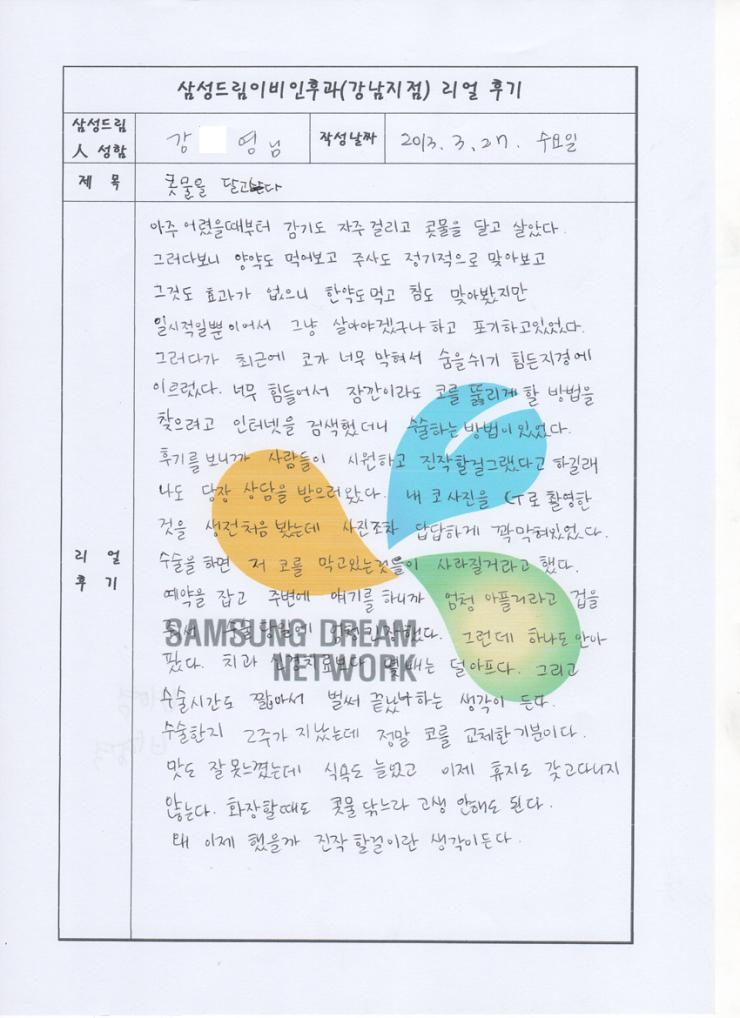 삼성드림이비인후과(강남지점) 리얼 후기
삼성드림
人 성함
강 영님
작성날짜
2013. 3. 27. 수요일
제 목
콧물을 달고
아주 어렸을때부터 감기도 자주 걸리고 콧물을 달고 살았다.
그러다보니 양약도 먹어보고 주사도 정기적으로 맞아보고
그것도 효과가 없으니 한약도먹고 침도 맞아봤지만
일시적일뿐이어서 그냥 살아야겠구나 하고 포기하고있었다.
그러다가 최근에 코가 너무 막혀서 숨을쉬기 힘든지경에
이르렀다. 너무 힘들어서 잠깐이라도 코를 뚫리게 할 방법을
찾으려고 인터넷을 검색했더니 수술하는 방법이 있었다.
후기를 보니까 사람들이 시원하고 진작할걸그랬다고 하길래
나도 당장 상담을 받으러왔다. 내 코사진을 CT로 촬영한
것을 생전처음 봤는데 사진조차 답답하게 꽉막혀있었다.
리 얼
후 기
수술을 하면 저 코를 막고있는것들이 사라질거라고 했다.
예약을 잡고 주변에 얘기를 하니까 엄청 아플거라고 겁을
수술당일에 엄청긴장했다. 그런데 하나도 안아
팠다. 치과 신경치료보다 몇배는 덜아프다. 그리고
SAMSUNG DREAM
NETWORK
수술시간도 짧아서 벌써 끝났나하는 생각이 든다.
수술한지 2주가 지났는데 정말 코를 교체한기분이다.
맛도 잘못느꼈는데 식욕도 늘었고 이제 휴지도 갖고다니지
않는다. 화장할때도 콧물 닦느라 고생 안해도 된다.
왜 이제 했을까 진작 할걸이란 생각이든다.